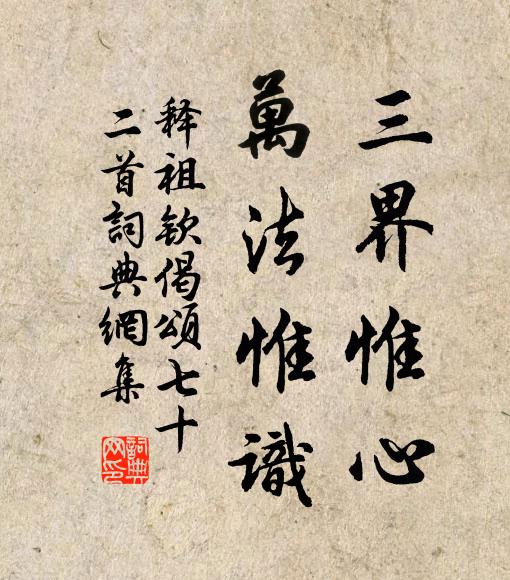 三界惟心
萬法惟識
释祖欽偈頌七十
二首詞典網集
詞典
网印